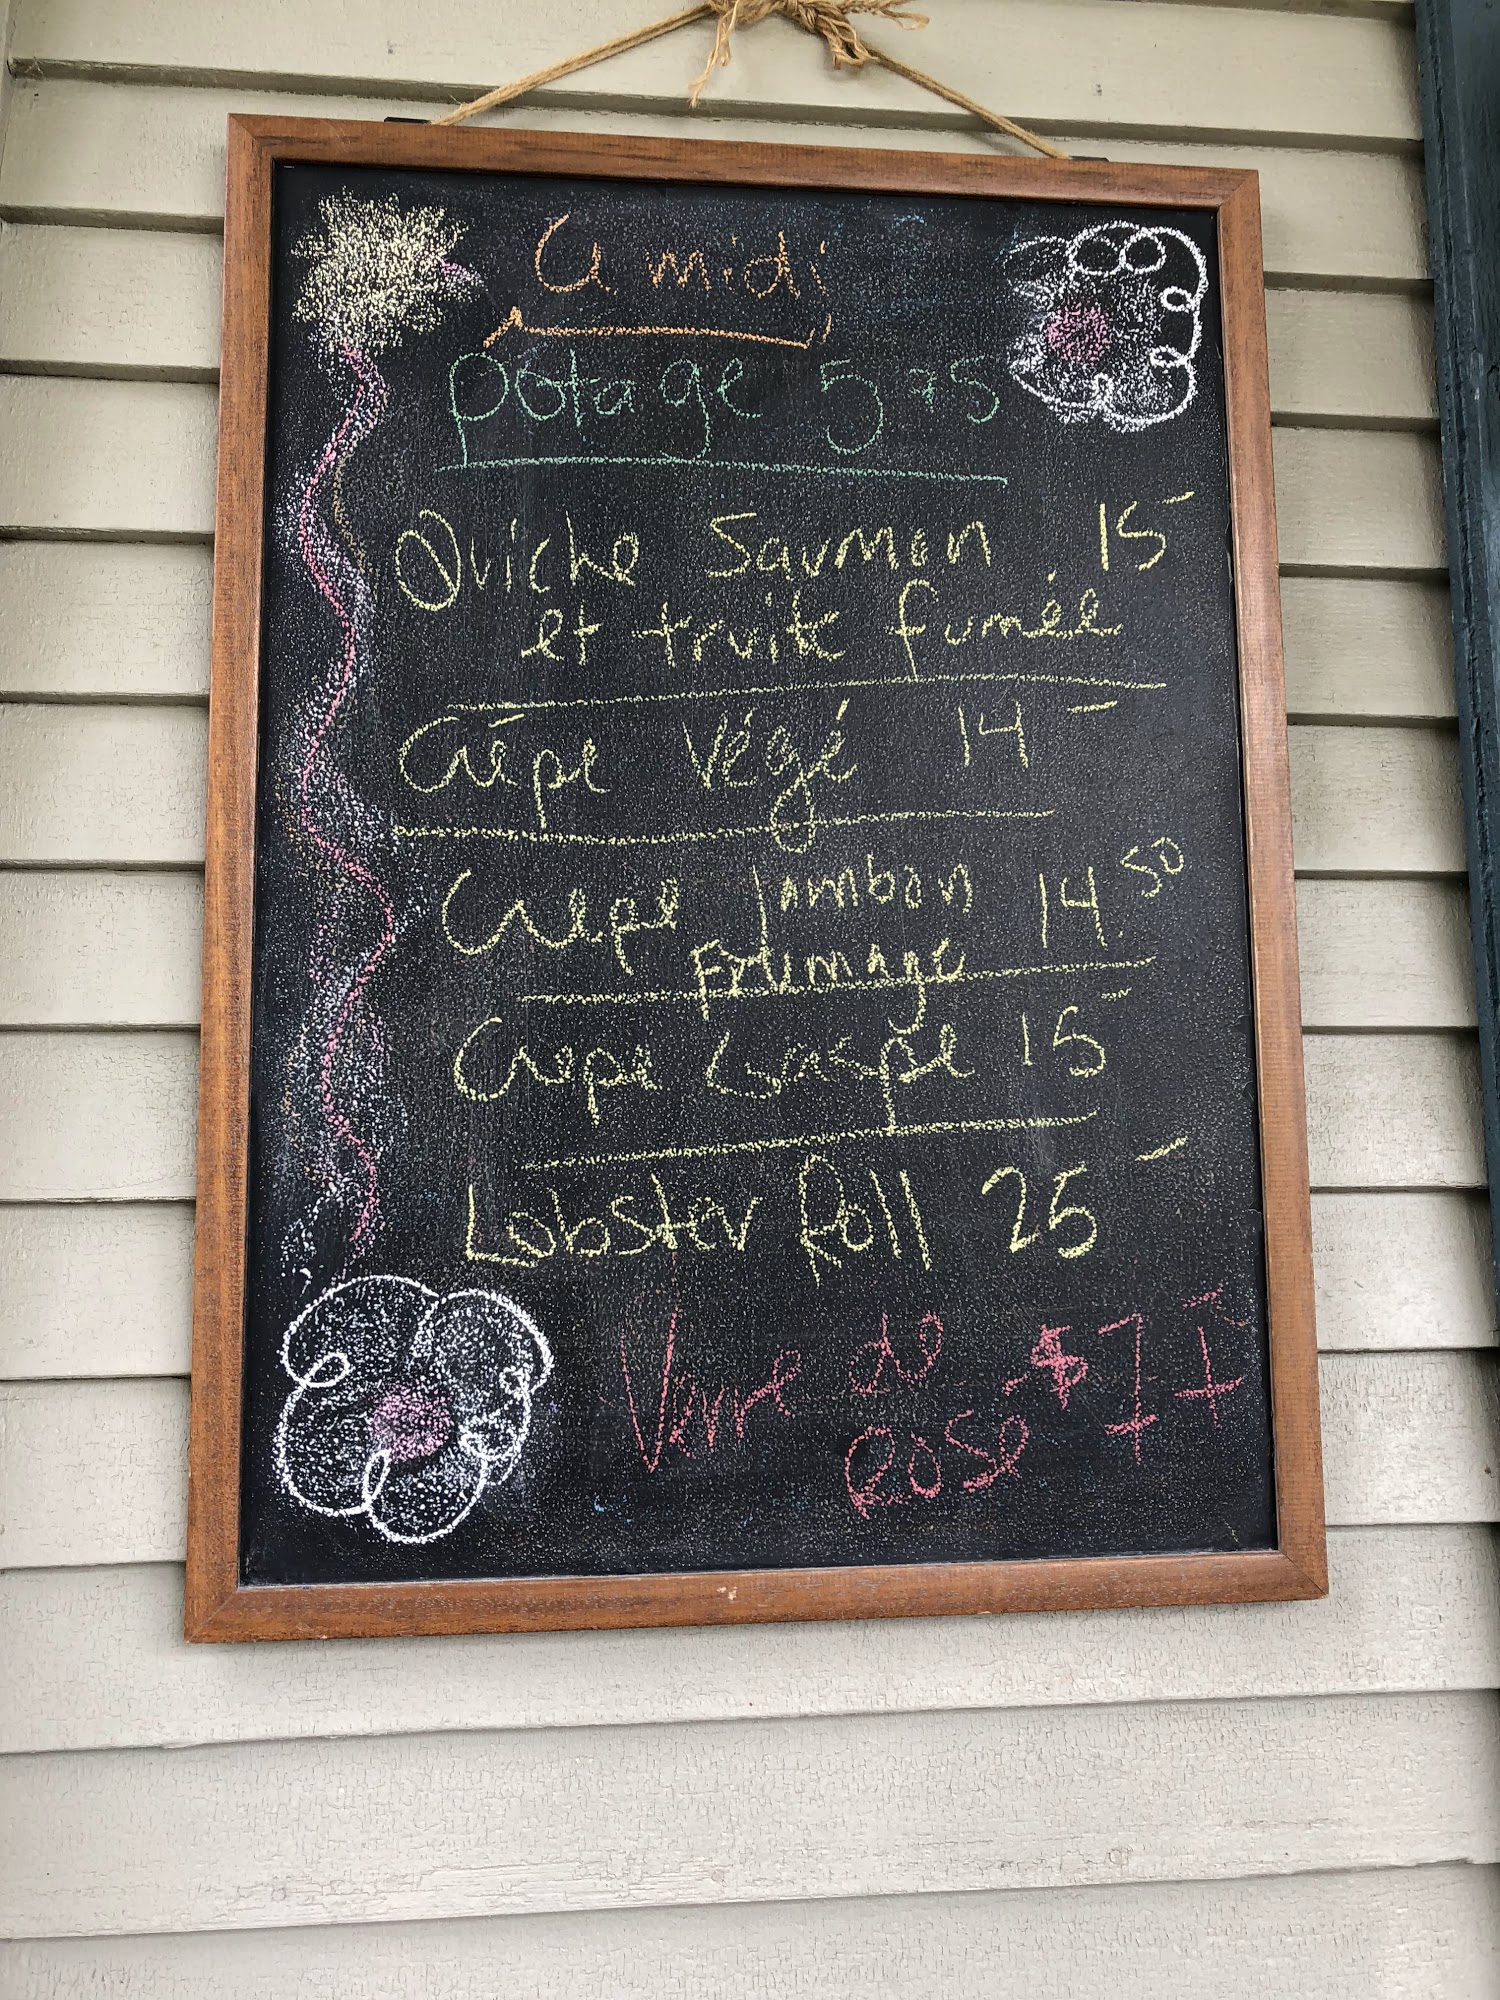 a midi
potage 5 75
Quiche Saumon 15-
et truite fumée
Crêpe Végé 14-
Crêpe Jambon 14.50
Fromage
Crepe Gaspe 15-
Lobster Roll 25-
Verre de $7-
Rosé